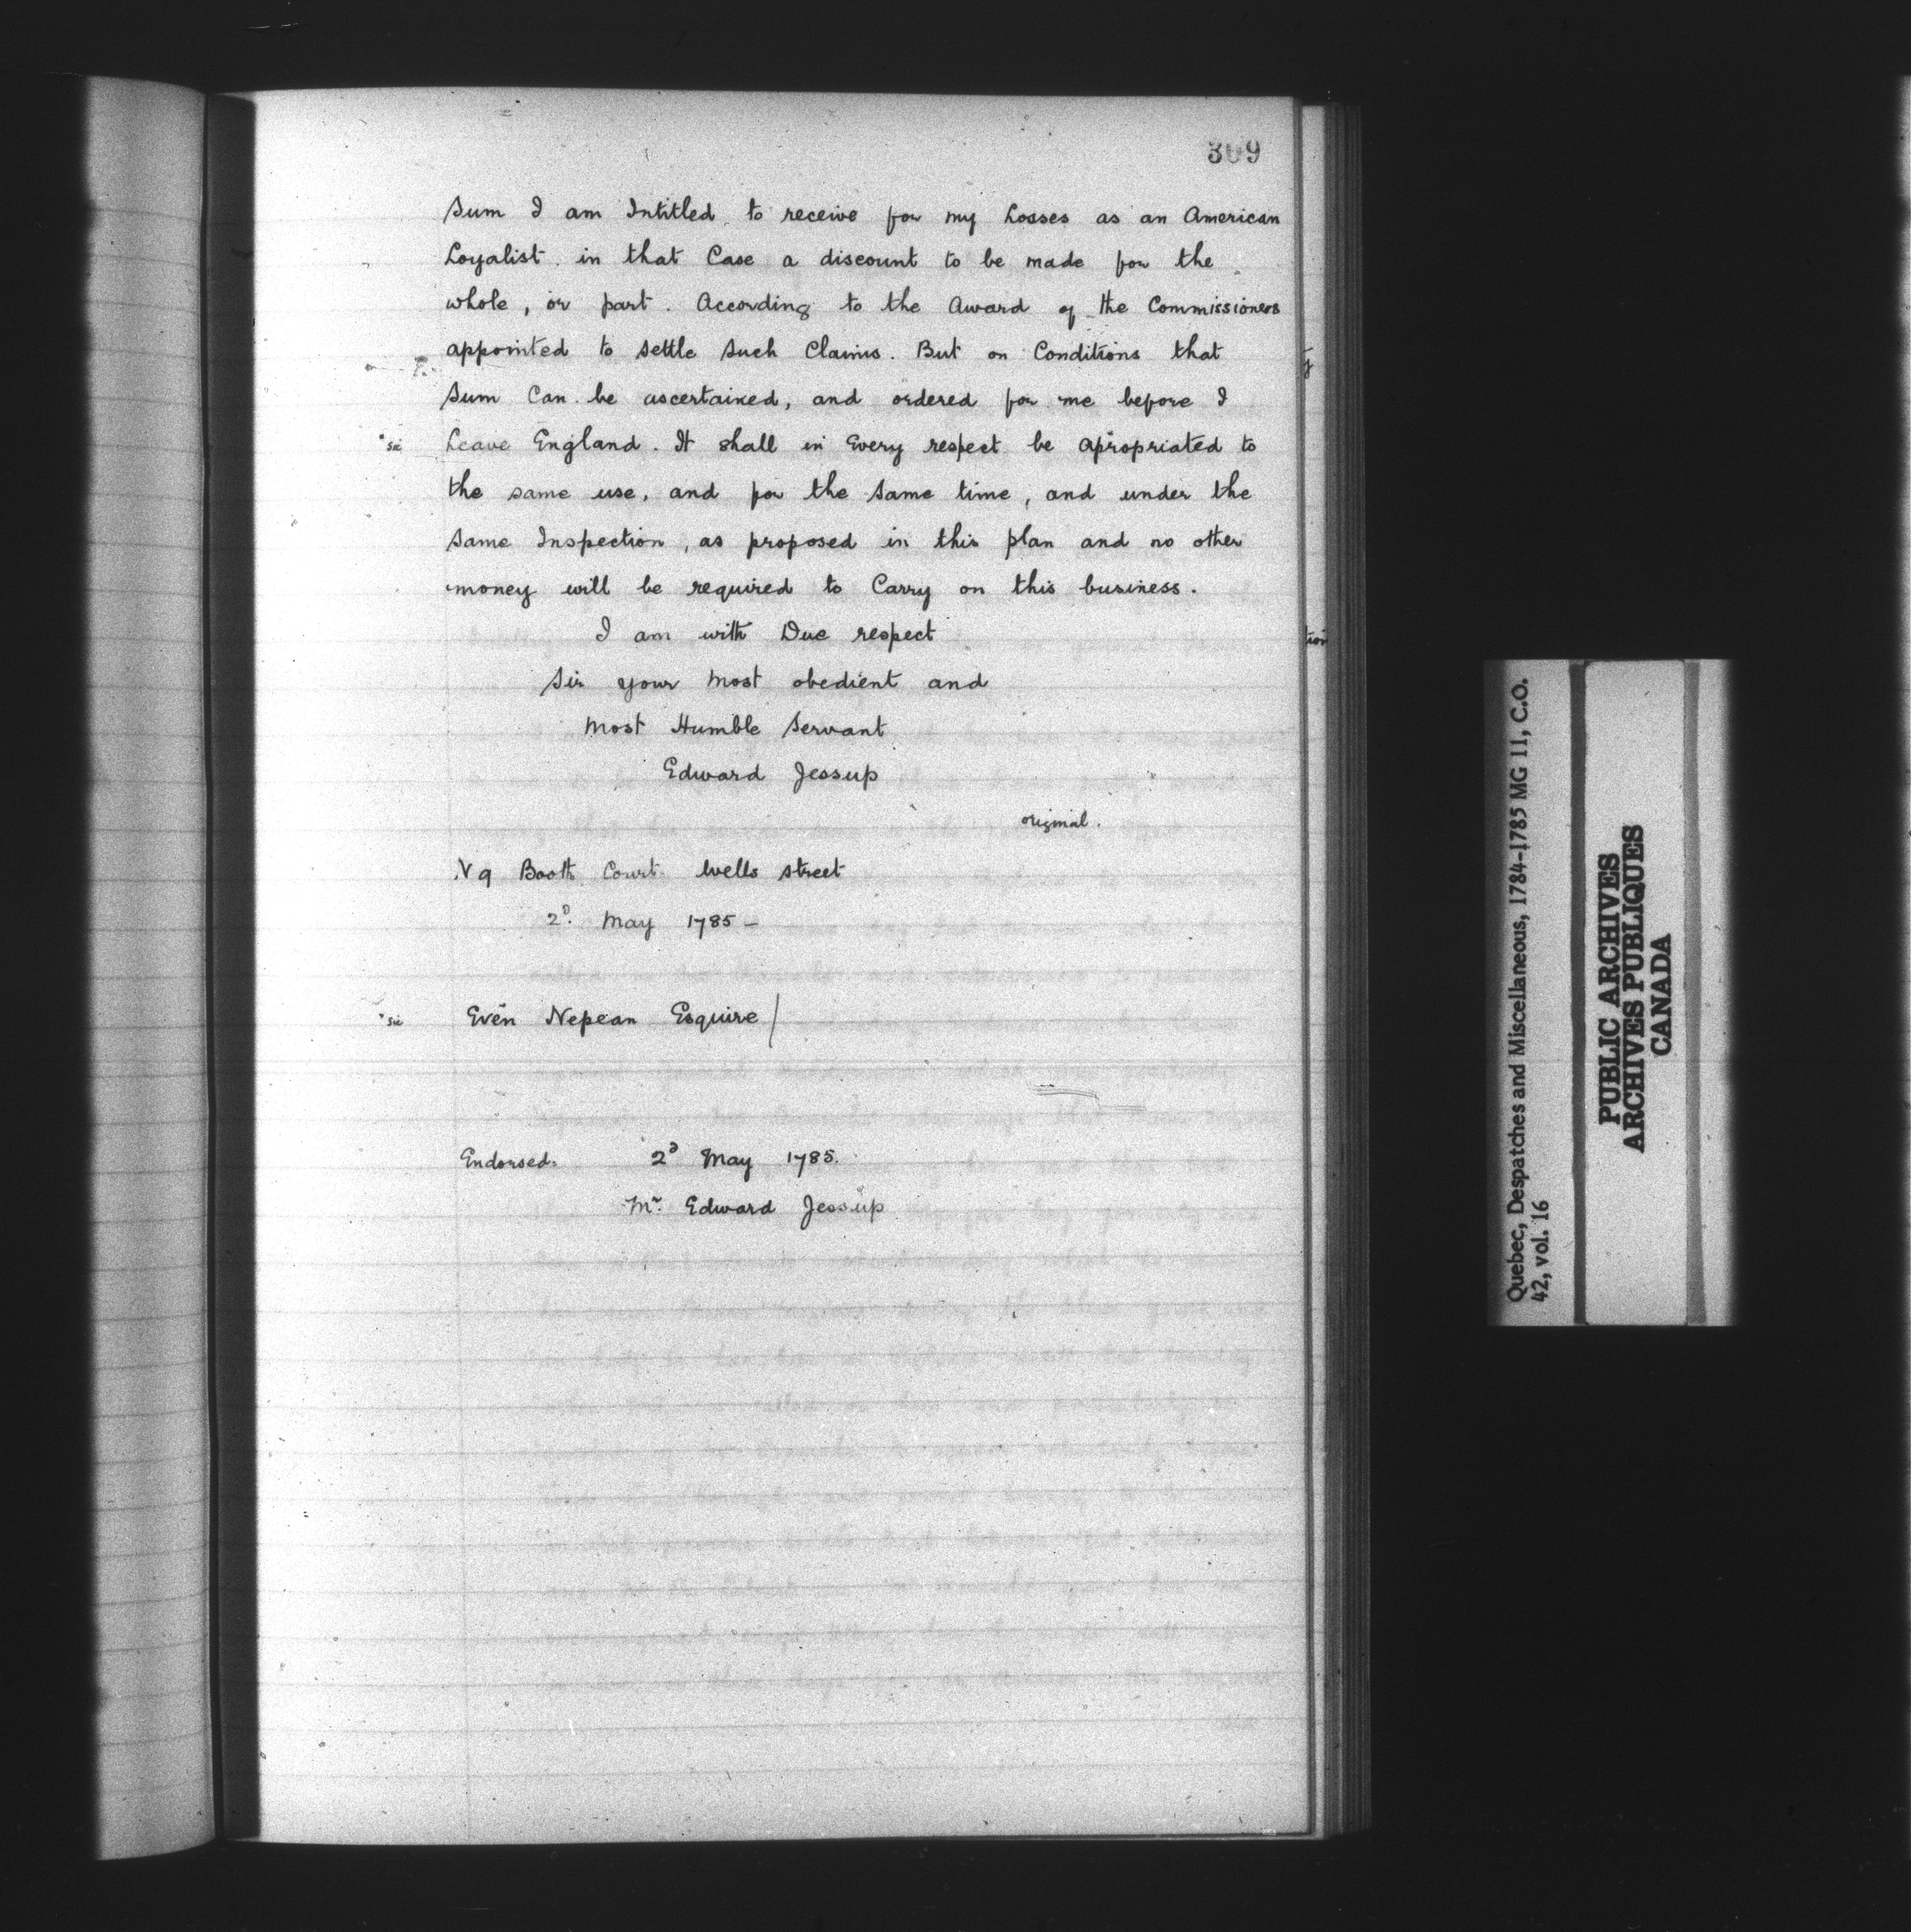 309
Sum I am Intitled to receive for my Losses as an American
Loyalist. in that Case a discount to be made for the
whole, or part. According to the Award of the Commissioners
appointed to settle Such Claims. But on Conditions that
Sum Can be ascertained, and ordered for me before I
*sic Leave England. It shall in Every respect be apropriated to
the same use, and for the Same time, and under the
Same Inspection, as proposed in this plan and no other
money will be required to Carry on this business.
I am with Due respect
Sir your Most obedient and
Most Humble Servant
Edward Jessup
original.
N 9 Booth Court Wells Street
2D. May 1785 —
*sic Even Nepean Esquire/
Endorsed. 2d May 1785.
Mr. Edward Jessup
Quebec, Despatches and Miscellaneous, 1784-1785 MG 11, C.O.
42, vol. 16
PUBLIC ARCHIVES
ARCHIVES PUBLIQUES
CANADA